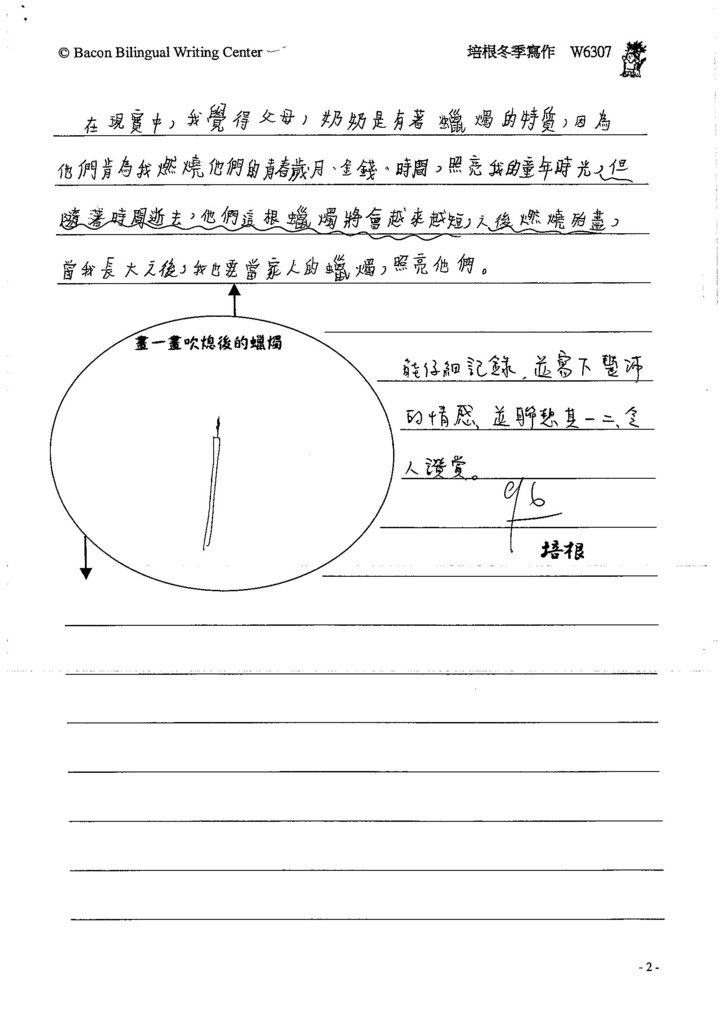 © Bacon Bilingual Writing Center
培根冬季寫作 W6307
在現實中，我覺得父母，奶奶是有著蠟燭的特質，因為
他們肯為我燃燒他們的青春歲月、金錢、時間，照亮我的童年時光，但
隨著時間逝去，他們這根蠟燭將會越來越短，之後燃燒殆盡，
當我長大之後，我也要當家人的蠟燭，照亮他們。
畫一畫吹熄後的蠟燭
能仔細記錄，並寫下豐沛
的情感，並聯想其一二，令
人讚賞。
96
培根
- 2 -